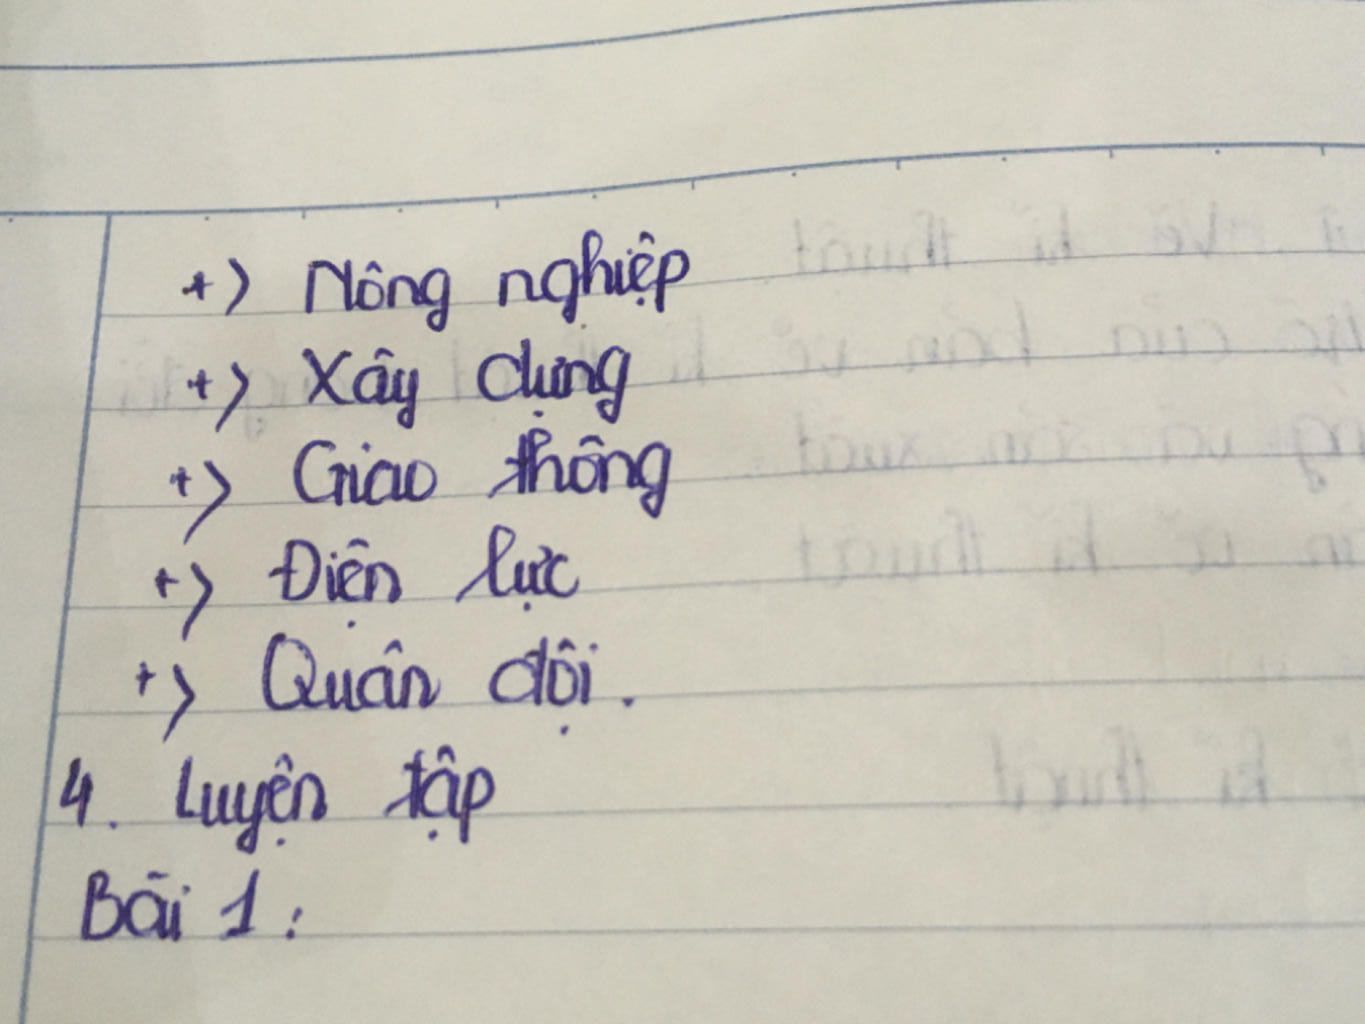 +) Nông nghiệp
+) Xây dựng
+) Giao thông
+) Điện lực
+) Quân đội.
4. Luyện tập
Bài 1: